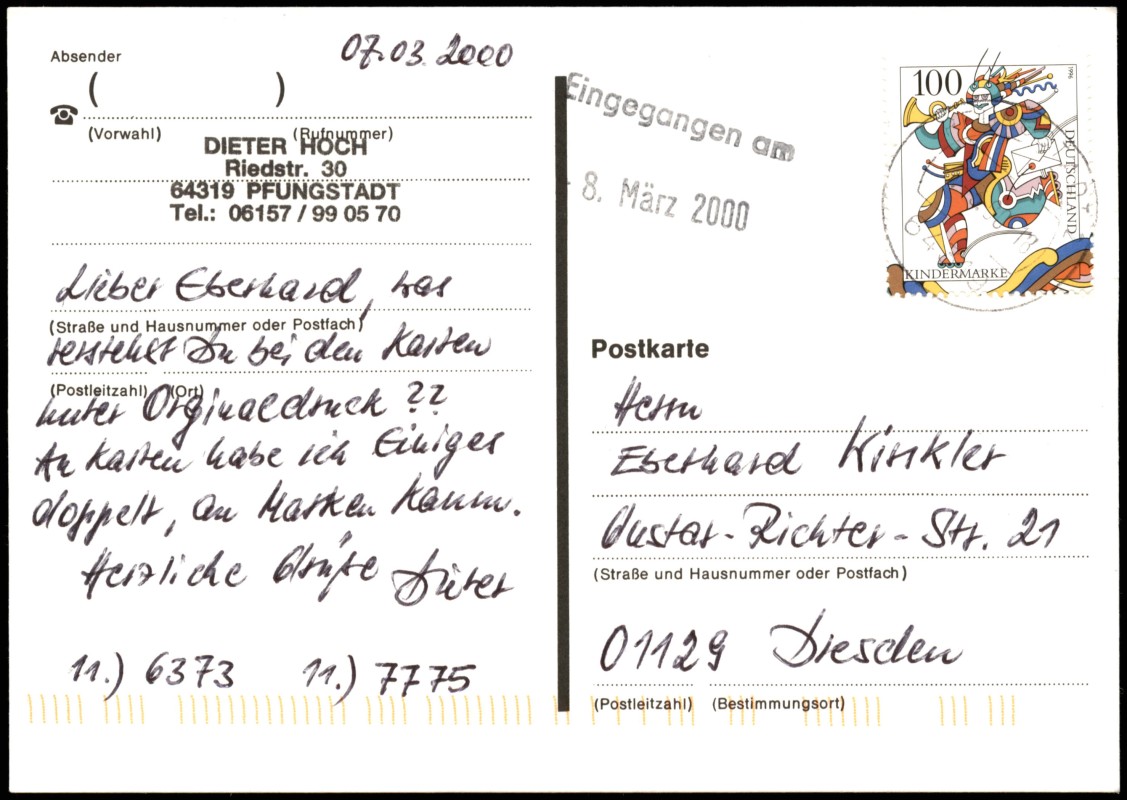 Absender
07.03.2000
( )
(Vorwahl) (Rufnummer)
DIETER HOCH
Riedstr. 30
64319 PFUNGSTADT
Tel.: 06157 / 99 05 70
Lieber Eberhard, was
(Straße und Hausnummer oder Postfach)
verstehst Du bei den Karten
(Postleitzahl) (Ort)
unter Orginaldruck ??
An Karten habe ich Einiges
doppelt, an Marken kaum.
Herzliche Grüße Dieter
11.) 6373 11.) 7775
Eingegangen am
8. März 2000
100
1996
DEUTSCHLAND
KINDERMARKE
Postkarte
Herrn
Eberhard Kinkler
Gustav-Richter-Str. 21
(Straße und Hausnummer oder Postfach)
01129 Dresden
(Postleitzahl) (Bestimmungsort)